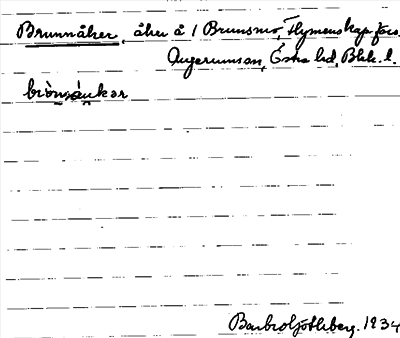 Brunnåker, åker å 1 Brunsmo, Flymenskap förs.
Augerumssn, Östra hd, Blek. l.
brònsåukər
1934